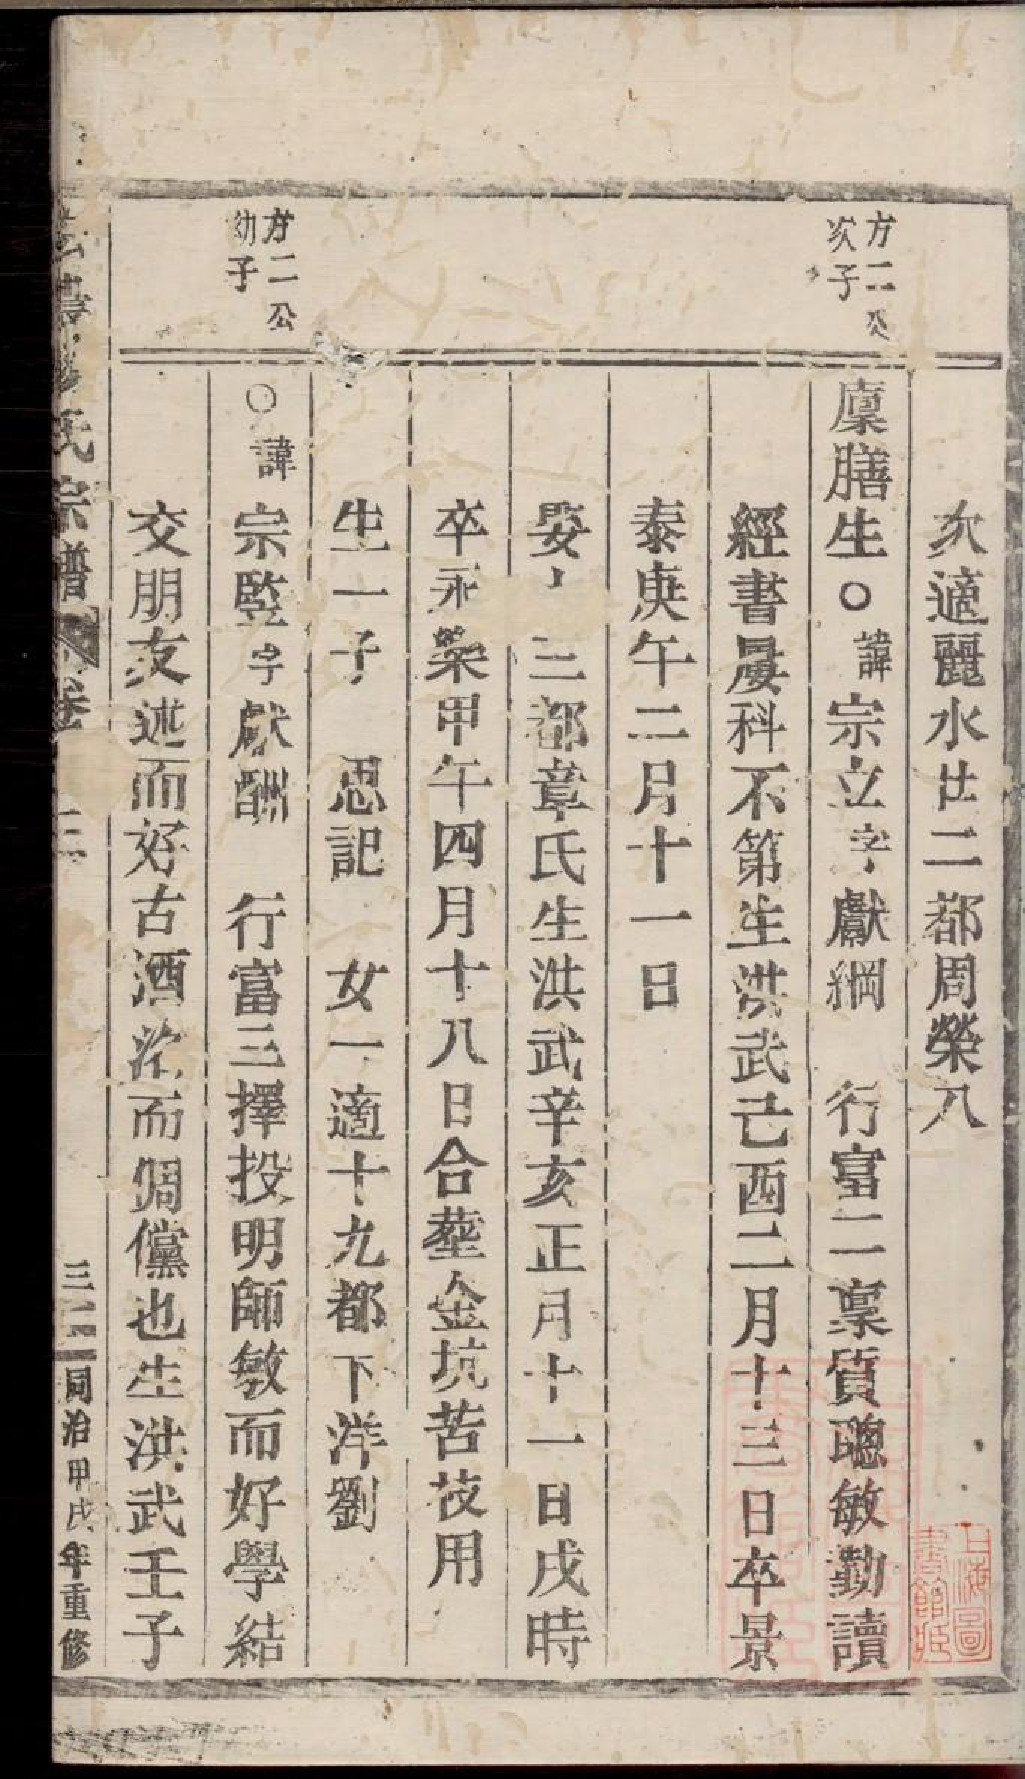 方二公
次子
方二公
幼子
次適麗水廿二都周榮八
廩膳生○諱宗立字獻綱 行富二稟質聰敏勤讀
經書屢科不第生洪武己酉二月十三日卒景
泰庚午二月十一日
娶 三都章氏生洪武辛亥正月十一日戌時
卒永樂甲午四月十八日合塟金坑苦茂用
生一子 思記 女一適十九都下洋劉
○諱宗監字獻酬 行富三擇投明師敏而好學結
交朋友述而好古酒 而倜儻也生洪武壬子
氏宗譜 卷 三
同治甲戌年重修